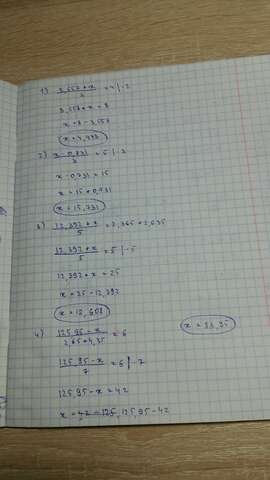 1) 3,557+x / 2 = 4 |·2
3,557+x = 8
x = 8 - 3,557
x = 4,443
2) x-0,731 / 3 = 5 |·3
x-0,731 = 15
x = 15+0,731
x = 15,731
3) 12,392+x / 5 = 2,365+2,635
12,392+x / 5 = 5 |·5
12,392+x = 25
x = 25-12,392
x = 12,608
4) 125,95-x / 2,65+4,35 = 6
125,95-x / 7 = 6 |·7
125,95-x = 42
x = 125,95-42
x = 83,95